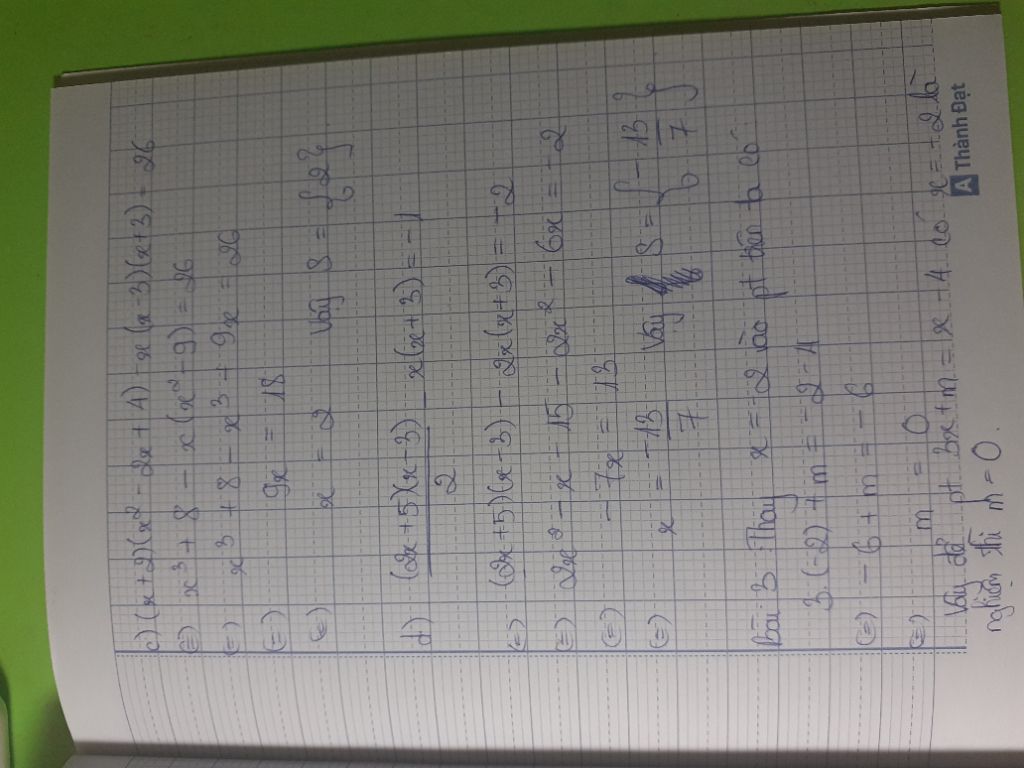 c) (x+2)(x² - 2x + 4) - x(x-3)(x+3) = 26
(=) x³ + 8 - x(x² - 9) = 26
(=) x³ + 8 - x³ + 9x = 26
(=) 9x = 18
(=) x = 2 Vậy S = {2}
d) (2x+5)(x-3)/2 - x(x+3) = -1
(=) (2x+5)(x-3) - 2x(x+3) = -2
(=) 2x² - x - 15 - 2x² - 6x = -2
(=) -7x = 13
(=) x = -13/7 Vậy S = {-13/7}
Bài 3: Thay x = -2 vào pt trên ta có
3(-2) + m = -2 - 4
(=) -6 + m = -6
(=) m = 0
Vậy để pt 3x + m = x - 4 có x = -2 là
nghiệm thì m = 0.
A Thành Đạt